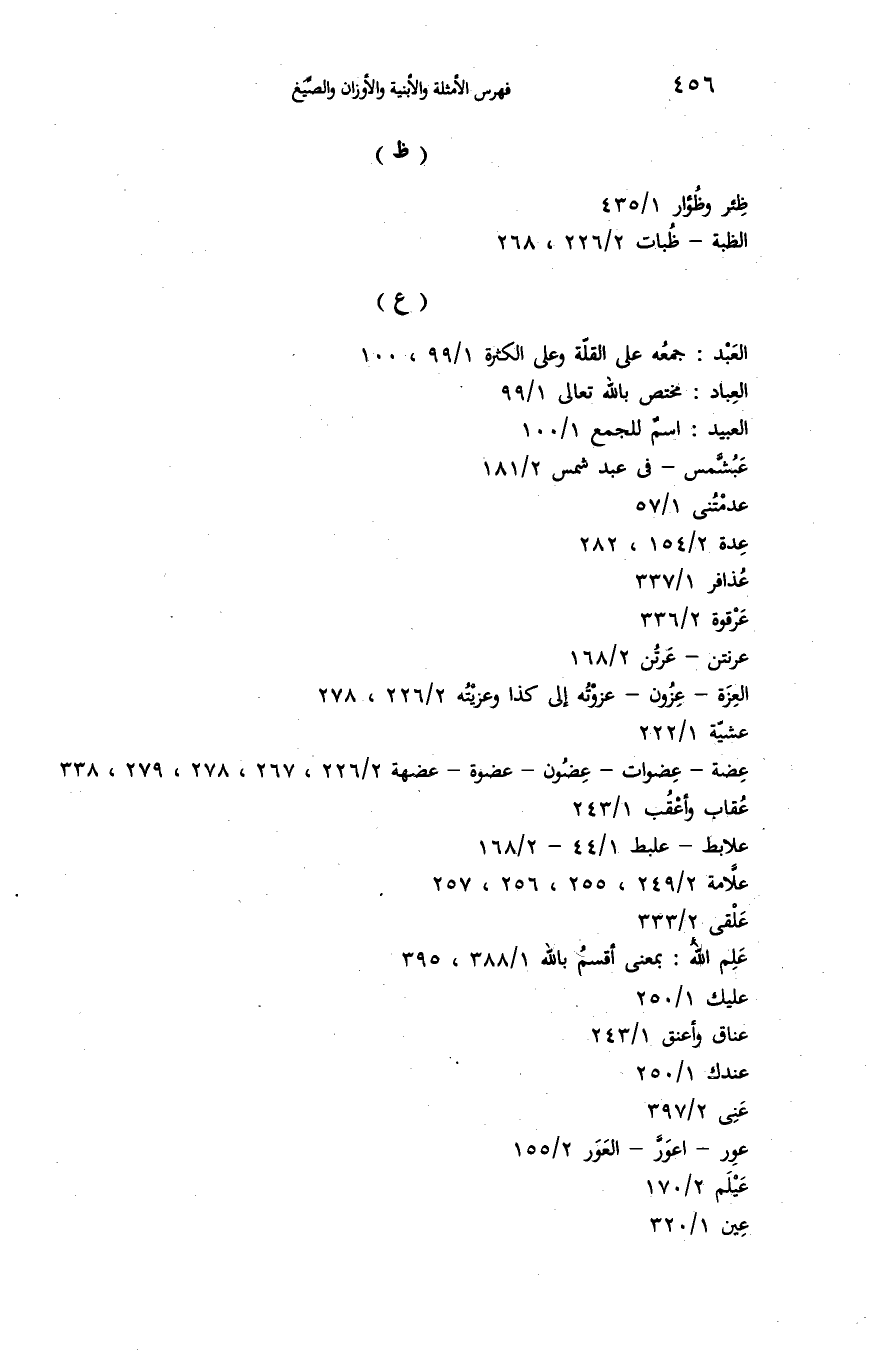 ٤٥٦ فهرس الأمثلة والأبنية والأوزان والصِّيَغ
( ظ )
ظِئر وظُؤار ٤٣٥/١
الظبة – ظُبات ٢٢٦/٢ ، ٢٦٨
( ع )
العَبْد : جمعُه على القلّة وعلى الكثرة ٩٩/١ ، ١٠٠
العِباد : مختص بالله تعالى ٩٩/١
العبيد : اسمٌ للجمع ١٠٠/١
عَبُشَّمس – فى عبد شمس ١٨١/٢
عدمْتُنى ٥٧/١
عِدة ١٥٤/٢ ، ٢٨٢
عُذافر ٣٣٧/١
عَرْقوة ٣٣٦/٢
عرنتن – عَرتُن ١٦٨/٢
العِزَة – عِزُون – عزوْتُه إلى كذا وعزيْتُه ٢٢٦/٢ ، ٢٧٨
عشيّة ٢٢٢/١
عِضة – عِضوات – عِضُون – عضوة – عضهة ٢٢٦/٢ ، ٢٦٧ ، ٢٧٨ ، ٢٧٩ ، ٣٣٨
عُقاب وأعْقُب ٢٤٣/١
علابط – علبط ٤٤/١ – ١٦٨/٢
علَّامة ٢٤٩/٢ ، ٢٥٥ ، ٢٥٦ ، ٢٥٧
عَلْقى ٣٣٣/٢
عَلِم اللهُ : بمعنى أقسمُ بالله ٣٨٨/١ ، ٣٩٥
عليك ٢٥٠/١
عناق وأعنق ٢٤٣/١
عندك ٢٥٠/١
عَنِى ٣٩٧/٢
عوِر – اعوَرَّ – العَوَر ١٥٥/٢
عَيْلَم ١٧٠/٢
عِين ٣٢٠/١